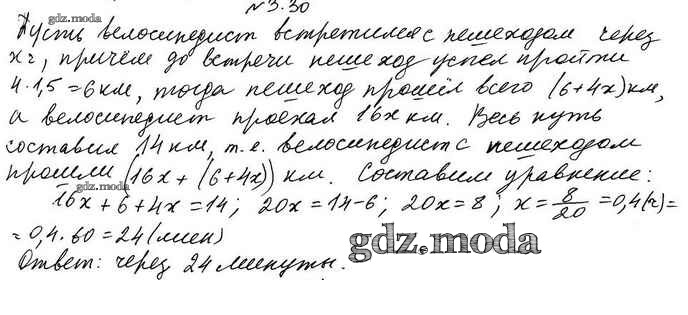 №3.30
Пусть велосипедист встретился с пешеходом через
gdz.moda
х ч, причём до встречи пешеход успел пройти
4·1,5=6 км, тогда пешеход прошёл всего (6+4х) км,
а велосипедист проехал 16х км. Весь путь
составил 14 км, т.е. велосипедист с пешеходом
прошли (16х + (6+4х)) км. Составим уравнение:
gdz.moda
16х+6+4х=14; 20х=14-6; 20х=8; х=8/20=0,4(ч)=
=0,4·60=24(мин)
gdz.moda
Ответ: через 24 минуты.